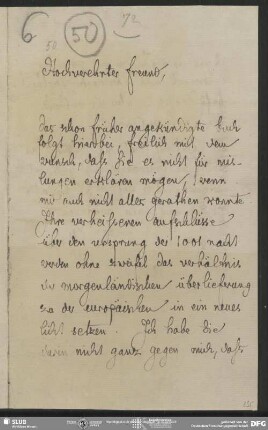 6 50 72
50
Hochverehrter freund,
das schon früher angekündigte buch
folgt hierbei, freilich mit dem
wunsch, daſs Sie es nicht für mis-
lungen erklären mögen, wenn
mir auch nicht alles gerathen konnte.
Ihre verheiſsenen aufschlüsse
über den ursprung der 1001 nacht
werden ohne zweifel das verhältnis
der morgenländischen überlieferung
zu der europäischen in ein neues
licht setzen. Ich habe Sie
darin nicht ganz gegen mich, daſs
SLUB
DFG